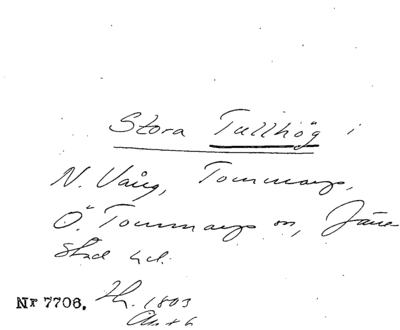 Stora Tullhög i
N. Vång, Tommarps,
Ö. Tommarps sn, Järre-
stad hd.
Nr 7706. Th. 1803
Akt 6